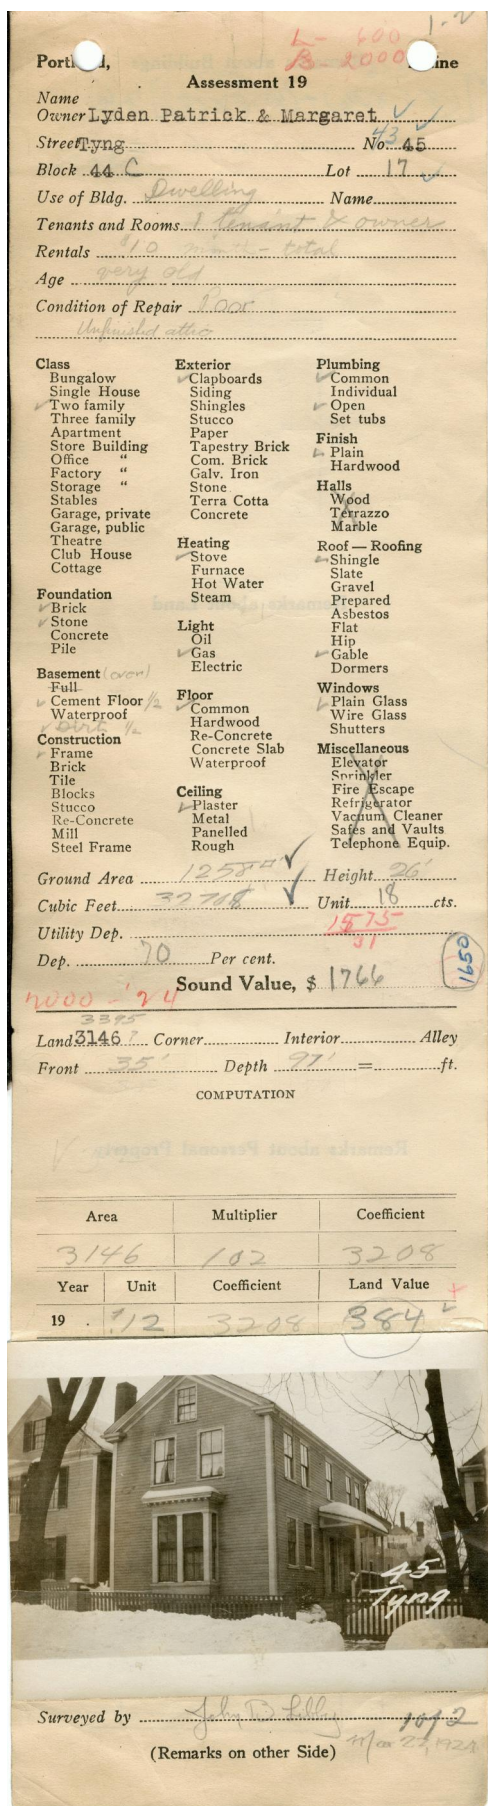 1-2
L- 600
B- 2000
Portland, Maine
Assessment 19
Name
Owner Lyden Patrick & Margaret
Street Tyng No. 43 45
Block 44 C Lot 17
Use of Bldg. Dwelling Name
Tenants and Rooms 1 tenant & owner
Rentals $10 month - total
Age very old
Condition of Repair Poor
Unfinished attic
Class
Bungalow
Single House
Two family
Three family
Apartment
Store Building
Office "
Factory "
Storage "
Stables
Garage, private
Garage, public
Theatre
Club House
Cottage
Foundation
Brick
Stone
Concrete
Pile
Basement (over)
Full
Cement Floor 1/2
Waterproof
Dirt 1/2
Construction
Frame
Brick
Tile
Blocks
Stucco
Re-Concrete
Mill
Steel Frame
Exterior
Clapboards
Siding
Shingles
Stucco
Paper
Tapestry Brick
Com. Brick
Galv. Iron
Stone
Terra Cotta
Concrete
Heating
Stove
Furnace
Hot Water
Steam
Light
Oil
Gas
Electric
Floor
Common
Hardwood
Re-Concrete
Concrete Slab
Waterproof
Ceiling
Plaster
Metal
Panelled
Rough
Plumbing
Common
Individual
Open
Set tubs
Finish
Plain
Hardwood
Halls
Wood
Terrazzo
Marble
Roof — Roofing
Shingle
Slate
Gravel
Prepared
Asbestos
Flat
Hip
Gable
Dormers
Windows
Plain Glass
Wire Glass
Shutters
Miscellaneous
Elevator
Sprinkler
Fire Escape
Refrigerator
Vacuum Cleaner
Safes and Vaults
Telephone Equip.
Ground Area 1258 Height 26'
Cubic Feet 32708 Unit 18 cts.
Utility Dep. 1575
31
Dep. 70 Per cent.
1650
Sound Value, $ 1766
2000 - '24
3395
Land 3146 ? Corner Interior Alley
Front 35' Depth 97' = ft.
COMPUTATION
Remarks about Personal Property
Area Multiplier Coefficient
3146 102 3208
Year Unit Coefficient Land Value
19 . $12 3208 384
45
Tyng
Surveyed by John B Libby 1 of 2
(Remarks on other Side) Mar 22, 1924